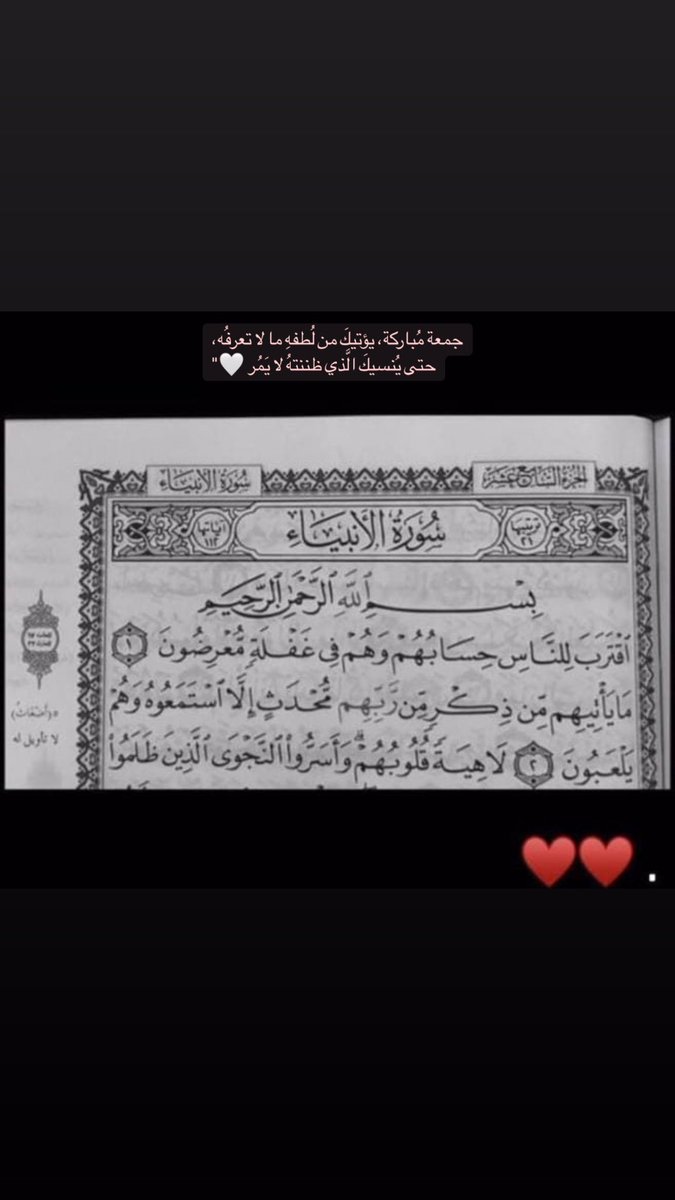 جمعة مُباركة، يؤتيكَ من لُطفهِ ما لا تعرفُه،
حتى يُنسيكَ الَّذي ظننتهُ لا يَمُر 🤍"
الجزء السابع عشر
سورة الأنبياء
ترتيبها ٢١
سُورَةُ الأَنبِيَاءِ
آياتها ١١٢
بِسْمِ ٱللَّهِ ٱلرَّحْمَٰنِ ٱلرَّحِيمِ
ٱقْتَرَبَ لِلنَّاسِ حِسَابُهُمْ وَهُمْ فِي غَفْلَةٍ مُّعْرِضُونَ ١
مَا يَأْتِيهِم مِّن ذِكْرٍ مِّن رَّبِّهِم مُّحْدَثٍ إِلَّا ٱسْتَمَعُوهُ وَهُمْ
يَلْعَبُونَ ٢ لَاهِيَةً قُلُوبُهُمْ ۗ وَأَسَرُّوا۟ ٱلنَّجْوَى ٱلَّذِينَ ظَلَمُوا۟
لا تأويل له
♥️♥️ .